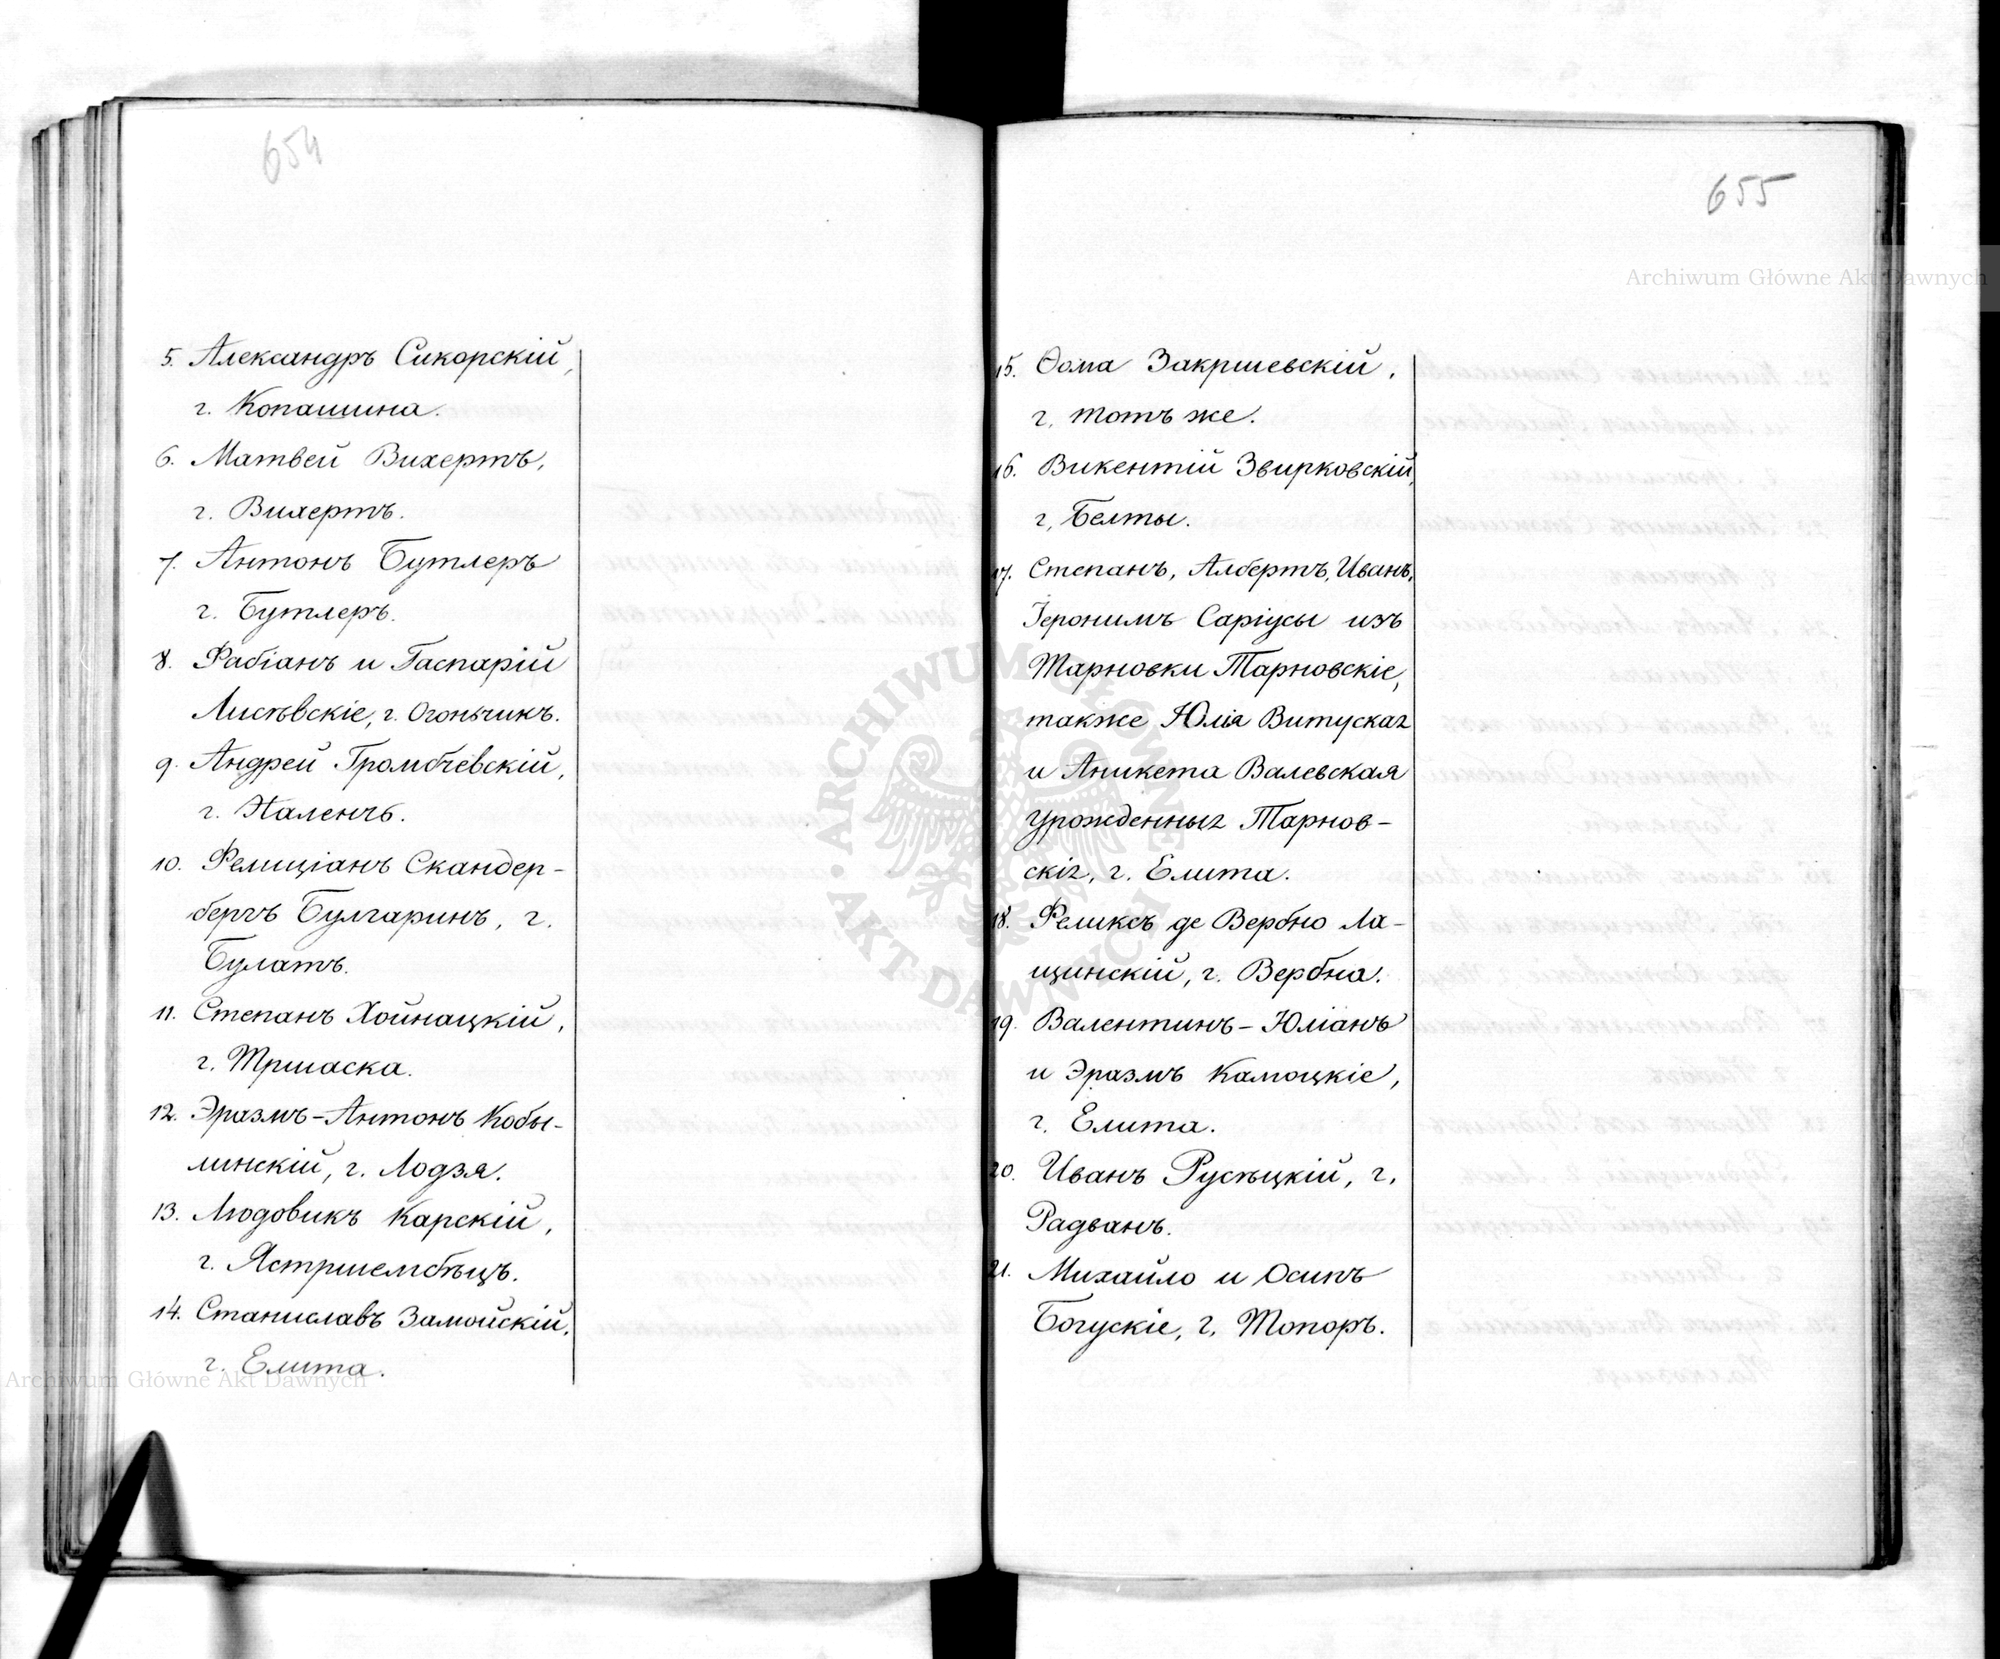 654
5. Александръ Сикорскій,
г. Копашина.
6. Матвей Вихертъ,
г. Вихертъ.
7. Антонъ Бутлеръ
г. Бутлеръ.
8. Фабіанъ и Гаспарій
Лисѣвскіе, г. Огоньчикъ.
9. Андрей Громбчевскій,
г. Наленчъ.
10. Фелиціанъ Скандер-
бергъ Булгаринъ, г.
Булатъ.
11. Степанъ Хойнацкій,
г. Тршаска.
12. Эразмъ-Антонъ Кобы-
линскій, г. Лодзя.
13. Людовикъ Карскій,
г. Ястршембѣцъ.
14. Станиславъ Замойскій,
г. Елита.
655
15. Ѳома Закршевскій,
г. тотъ же.
16. Викентій Звирковскій,
г. Белты.
17. Степанъ, Албертъ, Иванъ,
Іеронимъ Саріусы изъ
Тарновки Тарновскіе,
также Юлія Витуская
и Аникета Валевская
урожденныя Тарнов-
скія, г. Елита.
18. Феликсъ де Вербно Ла-
щинскій, г. Вербна.
19. Валентинъ-Юліанъ
и Эразмъ Камоцкіе,
г. Елита.
20. Иванъ Русѣцкій, г.
Радванъ.
21. Михайло и Осипъ
Богускіе, г. Топоръ.
Archiwum Główne Akt Dawnych
Archiwum Główne Akt Dawnych
ARCHIWUM GŁÓWNE AKT DAWNYCH